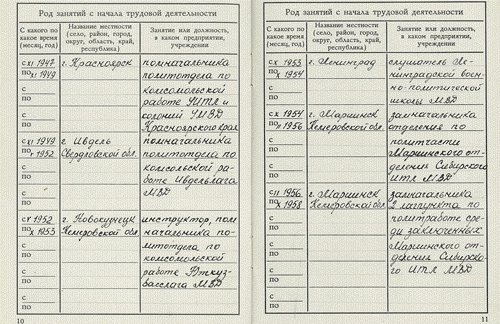 Род занятий с начала трудовой деятельности
С какого по какое время (месяц, год)
Название местности (село, район, город, округ, область, край, республика)
Занятие или должность, в каком предприятии, учреждении
с XI 1947
по XI 1949
г. Красноярск
помначальника
политотдела по
комсомольской
работе УИТЛ и
колоний УМВД
Красноярского края
с
по
с
по
с XI 1949
по 1952
г. Ивдель
Свердловской обл.
помначальника
политотдела по
комсольской ра-
боте Ивдельлага
МВД
с
по
с
по
с V 1952
по X 1953
г. Новокузнецк
Кемеровской обл.
инструктор, пом
начальника по-
литотдела по
комсомольской
работе Южкуз-
басслага МВД
с
по
с
по
10
Род занятий с начала трудовой деятельности
С какого по какое время (месяц, год)
Название местности (село, район, город, округ, область, край, республика)
Занятие или должность, в каком предприятии, учреждении
с X 1953
по X 1954
г. Ленинград
слушатель Ле-
нинградской воен-
но-политической
школы МВД
с
по
с X 1954
по II 1956
г. Мариинск
Кемеровской обл.
замначальника
отделения по
политчасти
Мариинского от-
деления Сибирского
ИТЛ МВД
с
по
с
по
с II 1956
по X 1958
г. Мариинск
Кемеровской обл.
замначальника
2 лагпункта по
политработе сре-
ди заключенных
Мариинского от-
деления Сибирско-
го ИТЛ МВД
с
по
с
по
с
по
11